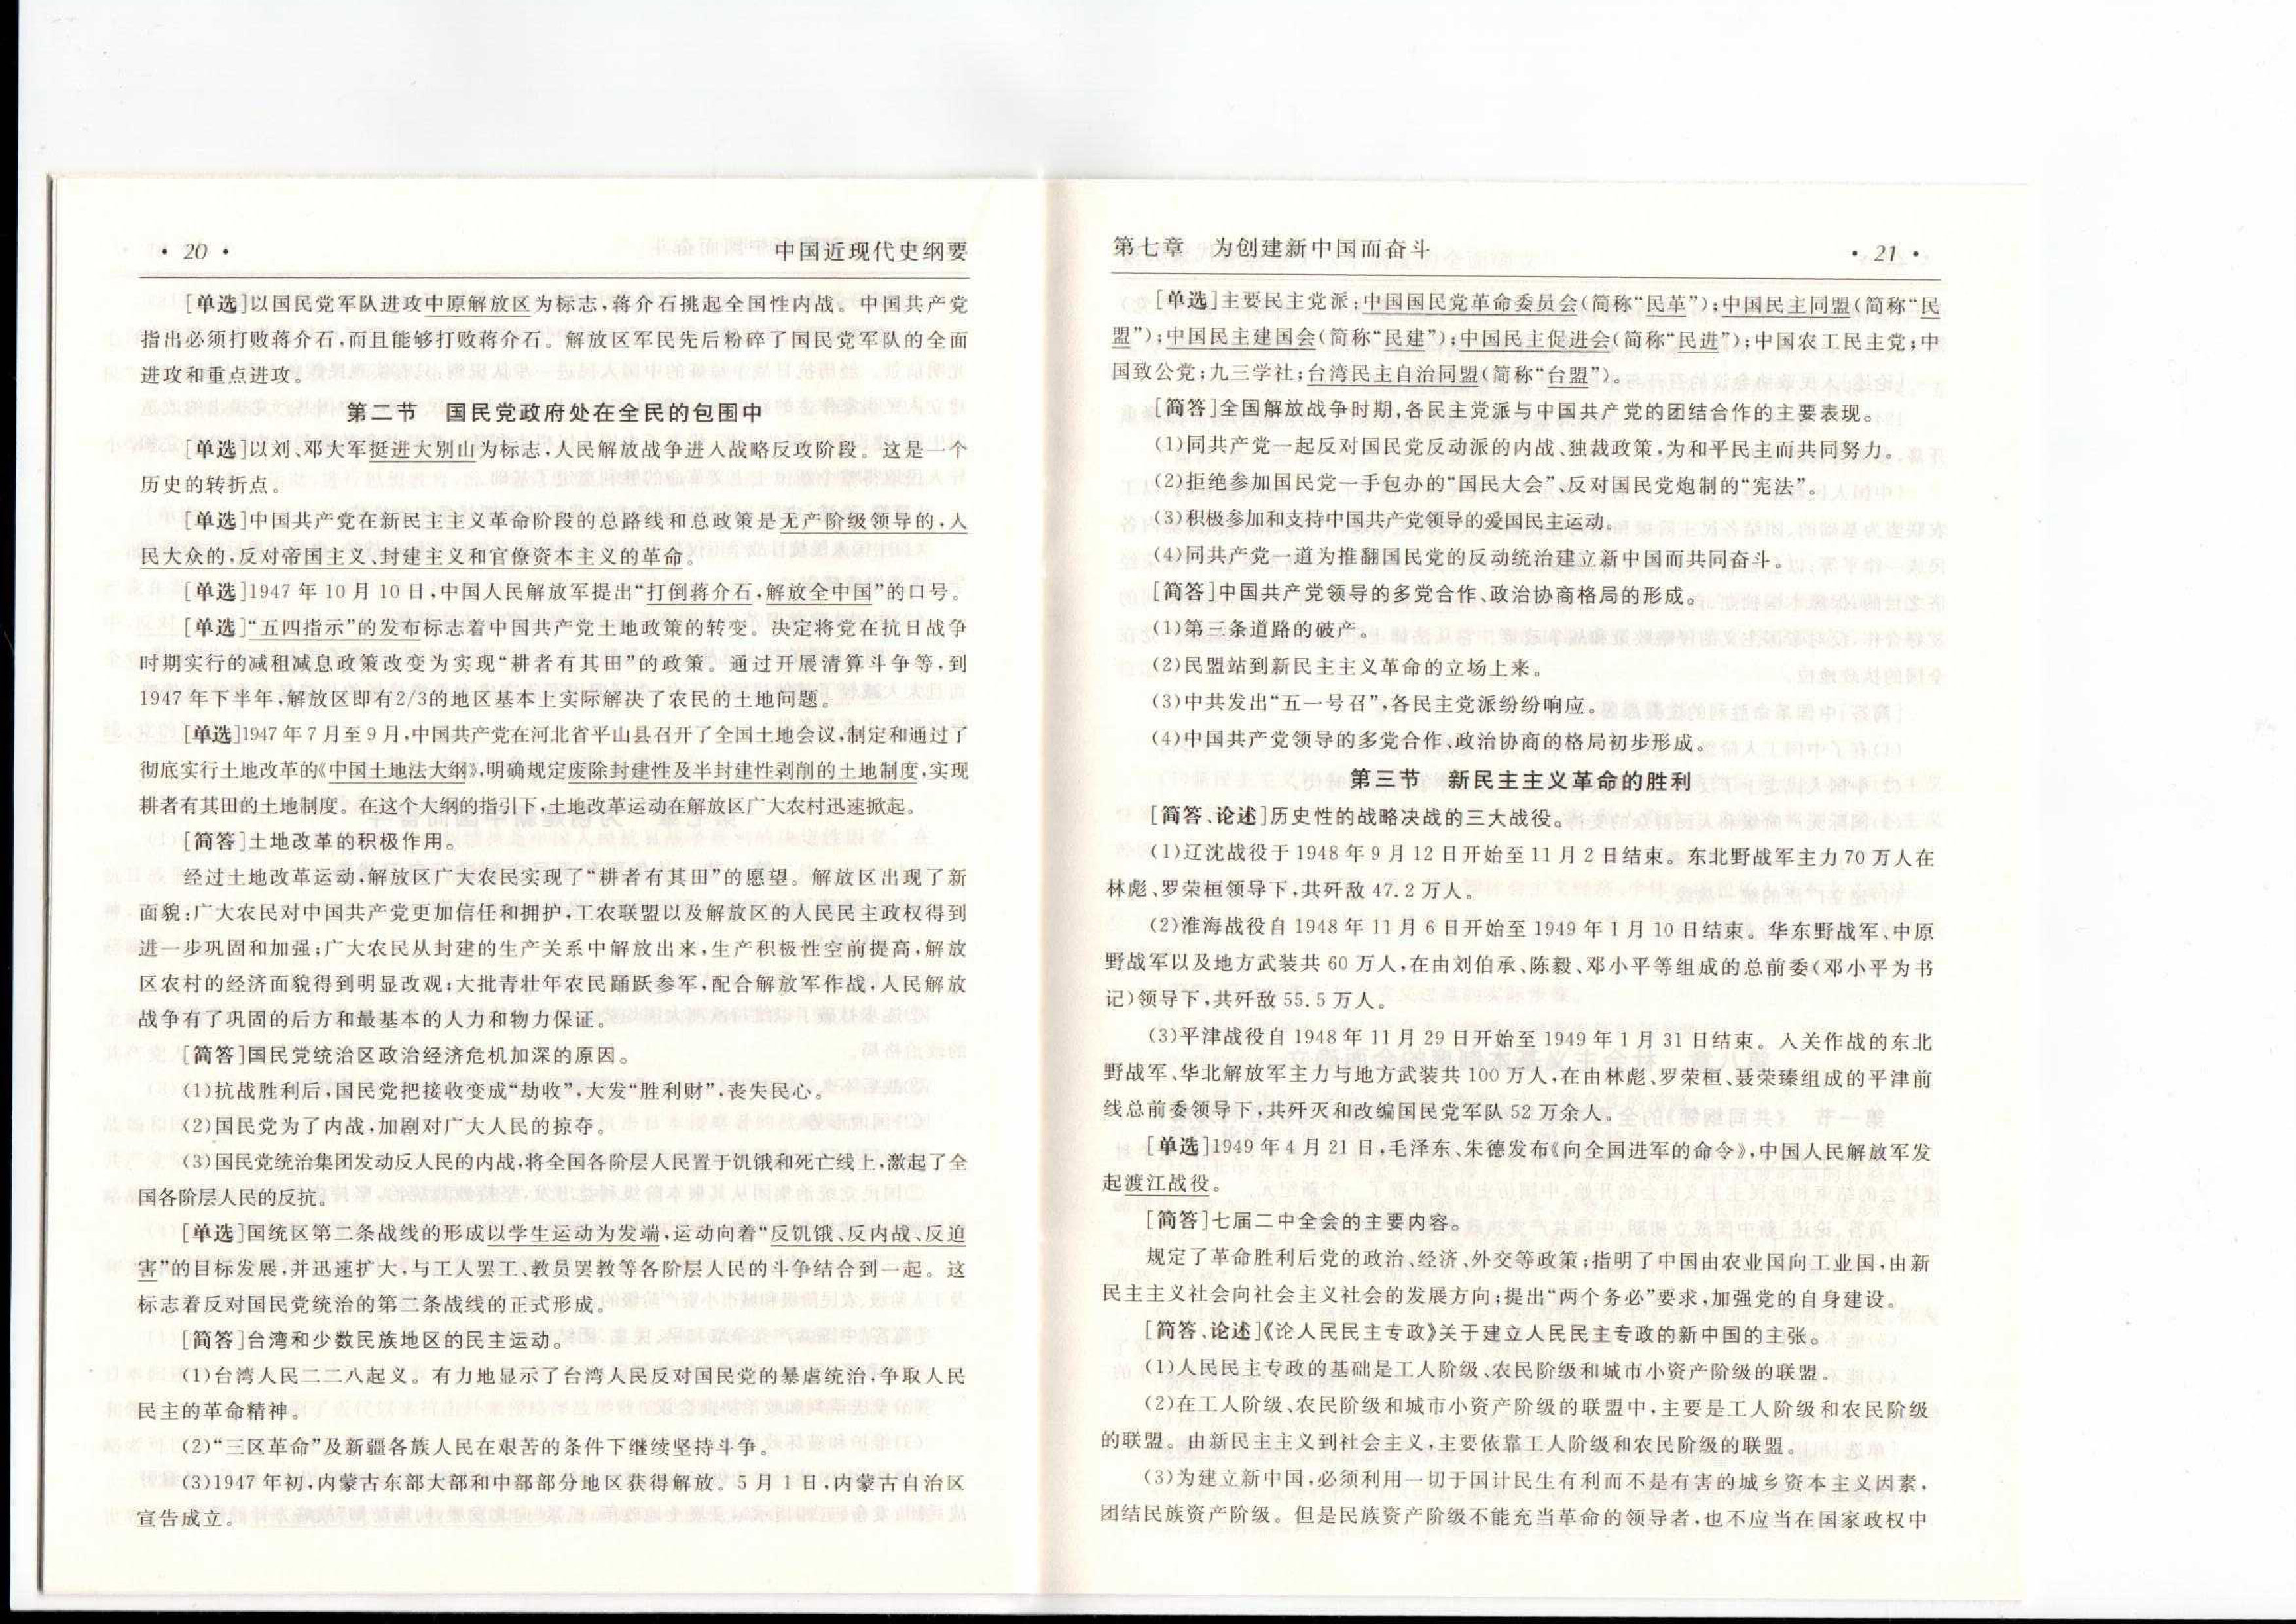 · 20 · 中国近现代史纲要
[单选]以国民党军队进攻中原解放区为标志,蒋介石挑起全国性内战。中国共产党
指出必须打败蒋介石,而且能够打败蒋介石。解放区军民先后粉碎了国民党军队的全面
进攻和重点进攻。
第二节 国民党政府处在全民的包围中
[单选]以刘、邓大军挺进大别山为标志,人民解放战争进入战略反攻阶段。这是一个
历史的转折点。
[单选]中国共产党在新民主主义革命阶段的总路线和总政策是无产阶级领导的,人
民大众的,反对帝国主义、封建主义和官僚资本主义的革命。
[单选]1947年10月10日,中国人民解放军提出“打倒蒋介石,解放全中国”的口号。
[单选]“五四指示”的发布标志着中国共产党土地政策的转变。决定将党在抗日战争
时期实行的减租减息政策改变为实现“耕者有其田”的政策。通过开展清算斗争等,到
1947年下半年,解放区即有2/3的地区基本上实际解决了农民的土地问题。
[单选]1947年7月至9月,中国共产党在河北省平山县召开了全国土地会议,制定和通过了
彻底实行土地改革的《中国土地法大纲》,明确规定废除封建性及半封建性剥削的土地制度,实现
耕者有其田的土地制度。在这个大纲的指引下,土地改革运动在解放区广大农村迅速掀起。
[简答]土地改革的积极作用。
经过土地改革运动,解放区广大农民实现了“耕者有其田”的愿望。解放区出现了新
面貌:广大农民对中国共产党更加信任和拥护,工农联盟以及解放区的人民民主政权得到
进一步巩固和加强;广大农民从封建的生产关系中解放出来,生产积极性空前提高,解放
区农村的经济面貌得到明显改观;大批青壮年农民踊跃参军,配合解放军作战,人民解放
战争有了巩固的后方和最基本的人力和物力保证。
[简答]国民党统治区政治经济危机加深的原因。
(1)抗战胜利后,国民党把接收变成“劫收”,大发“胜利财”,丧失民心。
(2)国民党为了内战,加剧对广大人民的掠夺。
(3)国民党统治集团发动反人民的内战,将全国各阶层人民置于饥饿和死亡线上,激起了全
国各阶层人民的反抗。
[单选]国统区第二条战线的形成以学生运动为发端,运动向着“反饥饿、反内战、反迫
害”的目标发展,并迅速扩大,与工人罢工、教员罢教等各阶层人民的斗争结合到一起。这
标志着反对国民党统治的第二条战线的正式形成。
[简答]台湾和少数民族地区的民主运动。
(1)台湾人民二二八起义。有力地显示了台湾人民反对国民党的暴虐统治,争取人民
民主的革命精神。
(2)“三区革命”及新疆各族人民在艰苦的条件下继续坚持斗争。
(3)1947年初,内蒙古东部大部和中部部分地区获得解放。5月1日,内蒙古自治区
宣告成立。
第七章 为创建新中国而奋斗 · 21 ·
[单选]主要民主党派:中国国民党革命委员会(简称“民革”);中国民主同盟(简称“民
盟”);中国民主建国会(简称“民建”);中国民主促进会(简称“民进”);中国农工民主党;中
国致公党;九三学社;台湾民主自治同盟(简称“台盟”)。
[简答]全国解放战争时期,各民主党派与中国共产党的团结合作的主要表现。
(1)同共产党一起反对国民党反动派的内战、独裁政策,为和平民主而共同努力。
(2)拒绝参加国民党一手包办的“国民大会”、反对国民党炮制的“宪法”。
(3)积极参加和支持中国共产党领导的爱国民主运动。
(4)同共产党一道为推翻国民党的反动统治建立新中国而共同奋斗。
[简答]中国共产党领导的多党合作、政治协商格局的形成。
(1)第三条道路的破产。
(2)民盟站到新民主主义革命的立场上来。
(3)中共发出“五一号召”,各民主党派纷纷响应。
(4)中国共产党领导的多党合作、政治协商的格局初步形成。
第三节 新民主主义革命的胜利
[简答、论述]历史性的战略决战的三大战役。
(1)辽沈战役于1948年9月12日开始至11月2日结束。东北野战军主力70万人在
林彪、罗荣桓领导下,共歼敌47.2万人。
(2)淮海战役自1948年11月6日开始至1949年1月10日结束。华东野战军、中原
野战军以及地方武装共60万人,在由刘伯承、陈毅、邓小平等组成的总前委(邓小平为书
记)领导下,共歼敌55.5万人。
(3)平津战役自1948年11月29日开始至1949年1月31日结束。入关作战的东北
野战军、华北解放军主力与地方武装共100万人,在由林彪、罗荣桓、聂荣臻组成的平津前
线总前委领导下,共歼灭和改编国民党军队52万余人。
[单选]1949年4月21日,毛泽东、朱德发布《向全国进军的命令》,中国人民解放军发
起渡江战役。
[简答]七届二中全会的主要内容。
规定了革命胜利后党的政治、经济、外交等政策;指明了中国由农业国向工业国,由新
民主主义社会向社会主义社会的发展方向;提出“两个务必”要求,加强党的自身建设。
[简答、论述]《论人民民主专政》关于建立人民民主专政的新中国的主张。
(1)人民民主专政的基础是工人阶级、农民阶级和城市小资产阶级的联盟。
(2)在工人阶级、农民阶级和城市小资产阶级的联盟中,主要是工人阶级和农民阶级
的联盟。由新民主主义到社会主义,主要依靠工人阶级和农民阶级的联盟。
(3)为建立新中国,必须利用一切于国计民生有利而不是有害的城乡资本主义因素,
团结民族资产阶级。但是民族资产阶级不能充当革命的领导者,也不应当在国家政权中